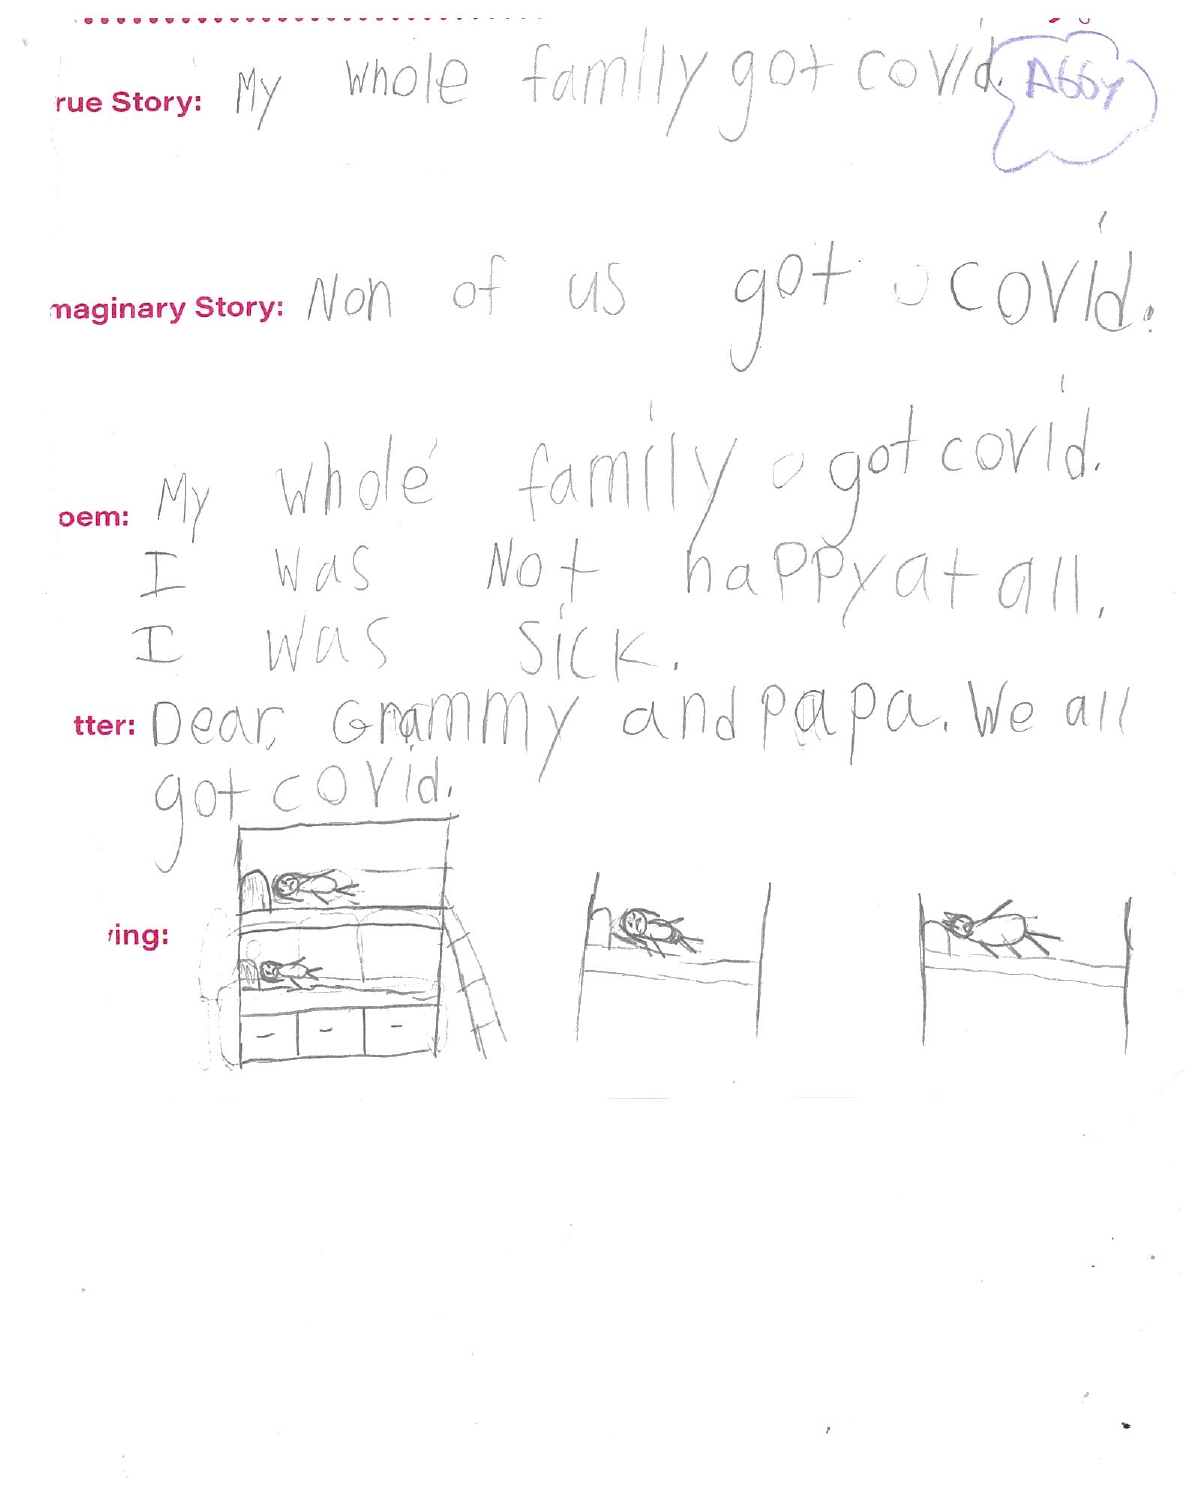 rue Story: My whole family got covid. Abby
maginary Story: Non of us got covid.
oem: My whole family got covid.
I was Not happy at all.
I was sick.
tter: Dear, Grammy and papa. We all
got covid.
ving: